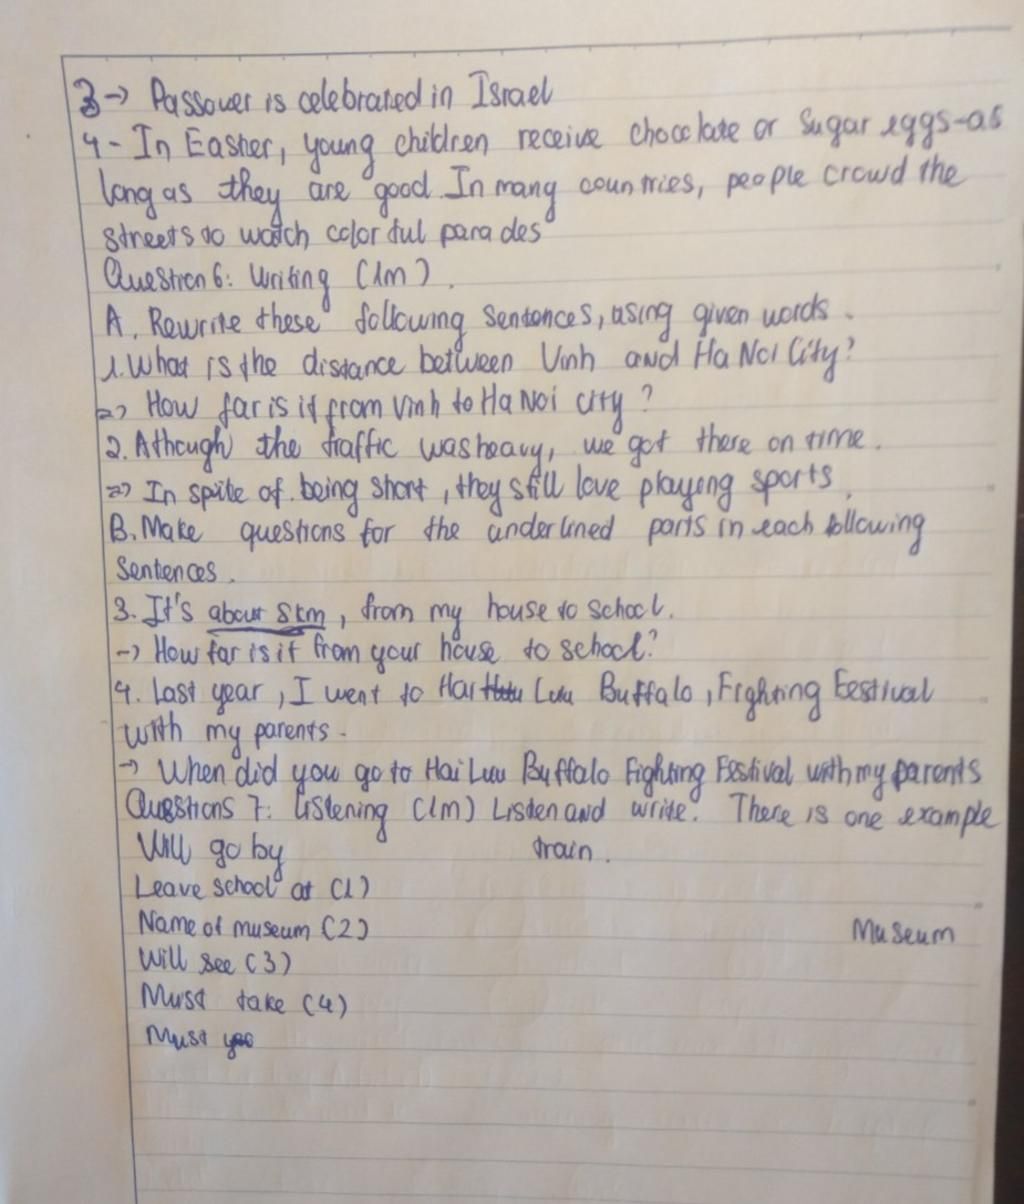 3 → Passover is celebrated in Israel
4 - In Easter, young children receive chocolate or sugar eggs-as
long as they are good. In many countries, people crowd the
streets to watch color ful parades
Question 6: Writing (1m).
A. Rewrite these following sentences, using given words.
1. What is the distance between Vinh and Ha Noi City?
=> How far is it from Vinh to Ha Noi city?
2. Athough the traffic was heavy, we got there on time.
=> In spite of being short, they still love playing sports.
B. Make questions for the underlined parts in each following
sentences.
3. It's about 8km, from my house to school.
-> How far is it from your house to school?
4. Last year, I went to Hai Luu Buffalo, Fighting Festival
with my parents.
-> When did you go to Hai Luu Buffalo Fighting Festival with my parents
Questions 7: Listening (1m) Listen and write. There is one example
Will go by train.
Leave school at (1)
Name of museum (2) Museum
Will see (3)
Must take (4)
Must